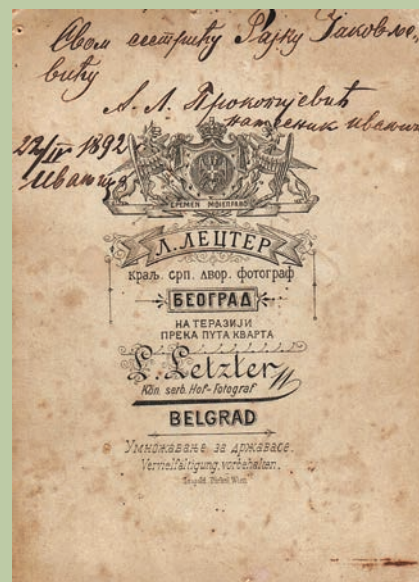 Свом сестрићу Рајку Јаковље-
вићу
А. Л. Прокопијевић
22/IV 1892
Иваница
ВРЕМЕН МОІЕПРАВО
Л. ЛЕЦТЕР
краљ. срп. двор. фотограф
БЕОГРАД
НА ТЕРАЗИЈИ
ПРЕКА ПУТА КВАРТА
L. Letzter
Kön. serb. Hof-Fotograf
BELGRAD
Умножавање за државасе.
Vervielfältigung vorbehalten.